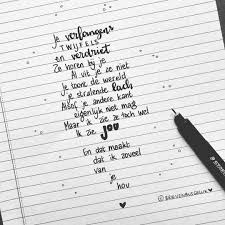 je verlangens
TWIJFELS
en verdriet
Ze horen bij je
Al uit je ze niet
je toont de wereld
je stralende lach
Alsof je andere kant
eigenlijk niet mag
Maar ik zie ze toch wel
Ik zie JOU
En dat maakt
dat ik zoveel
van
je
hou